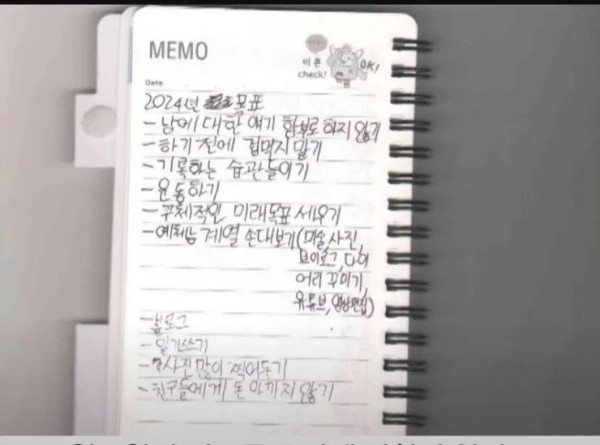 MEMO
미존
check!
OK!
Date
2024년 목표
- 남에 대한 얘기 함부로 하지 않기
- 하기 전에 겁먹지 말기
- 기록하는 습관들이기
- 운동하기
- 구체적인 미래목표 세우기
- 예체능 계열 손대보기(미술,사진,
브이로그,다이
어리 꾸미기,
유튜브,영상편집)
- 블로그
- 일기쓰기
- 사진 많이 찍어두기
- 친구들에게 돈 아끼지 않기